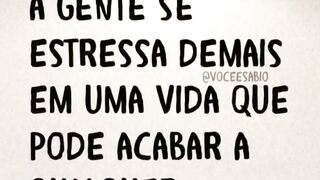 A GENTE SE
ESTRESSA DEMAIS
@VOCEESABIO
EM UMA VIDA QUE
PODE ACABAR A